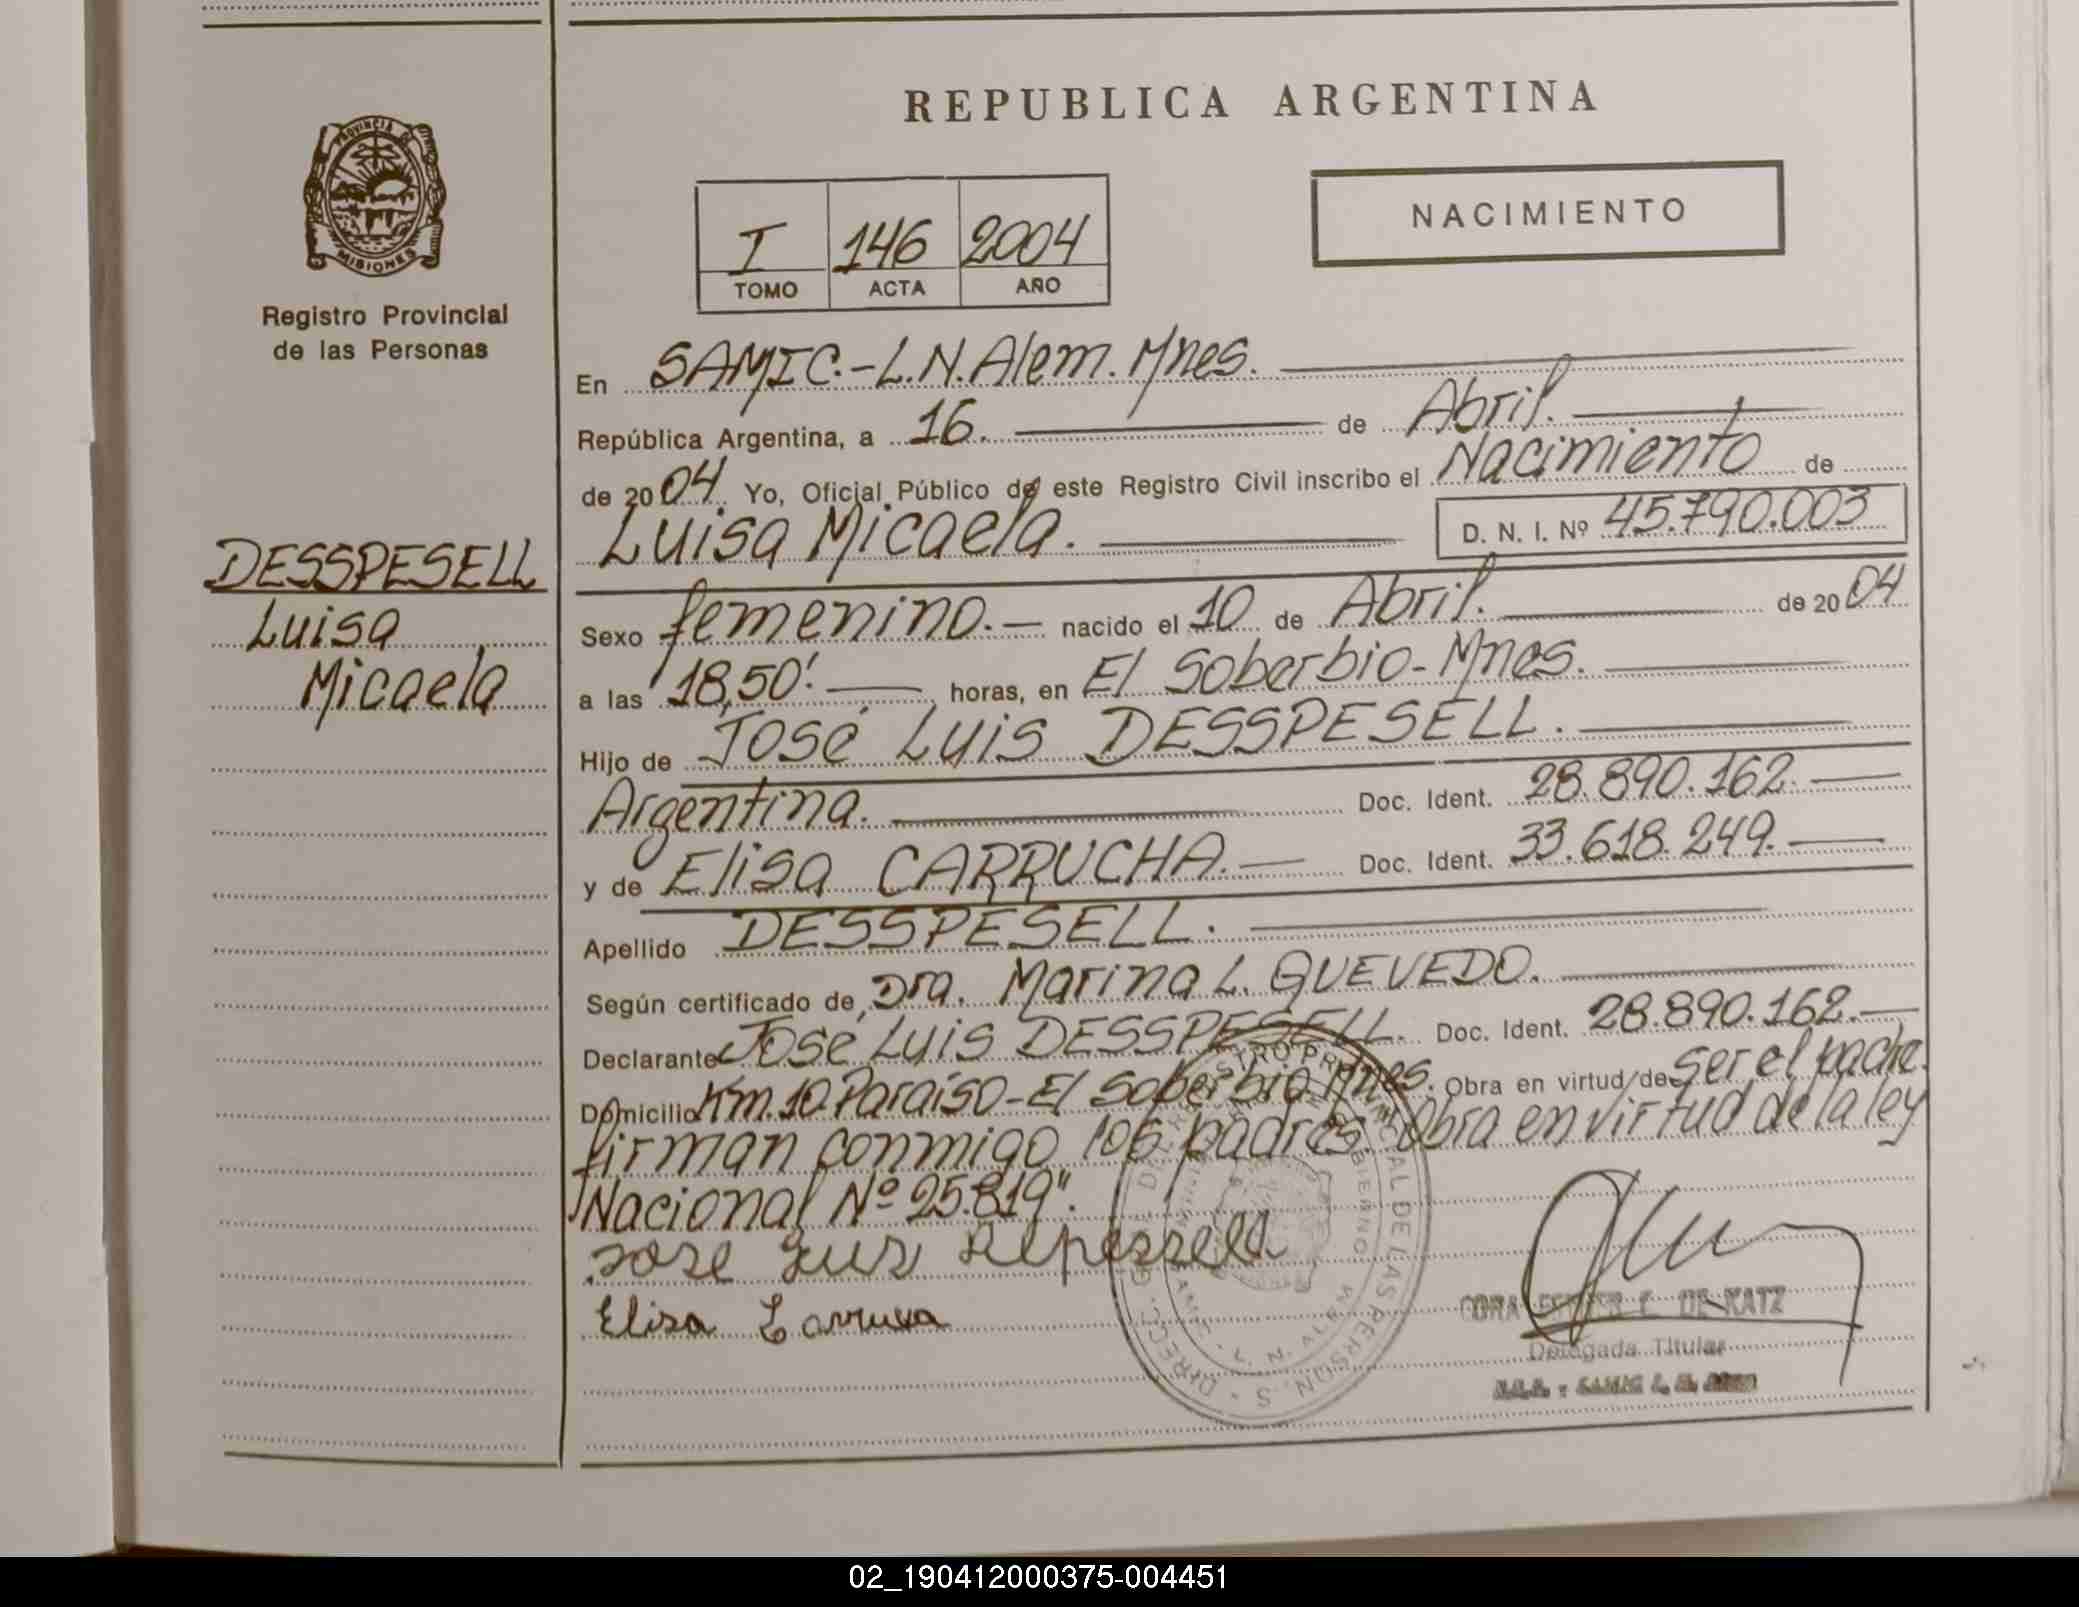 REPUBLICA ARGENTINA
PROVINCIA DE
MISIONES
Registro Provincial
de las Personas
I 146 2004
TOMO ACTA AÑO
NACIMIENTO
En SAMIC.-L.N.Alem. Mnes.
República Argentina, a 16. de Abril.
de 2004. Yo, Oficial Público de este Registro Civil inscribo el Nacimiento de
Luisa Micaela. D. N. I. Nº 45.790.003
DESSPESELL
Luisa
Micaela
Sexo femenino.- nacido el 10 de Abril. de 2004
a las 18,50'. horas, en El Soberbio-Mnes.
Hijo de José Luis DESSPESELL.
Argentina. Doc. Ident. 28.890.162.
y de Elisa CARRUCHA.- Doc. Ident. 33.618.249.
Apellido DESSPESELL.
Según certificado de, Dra. Marina L. QUEVEDO.
Declarante José Luis DESSPESELL. Doc. Ident. 28.890.162.-
Domicilio Km.10-Paraíso-El Soberbio Mnes. Obra en virtud de ser el padre.
firman conmigo los padres. Obra en virtud de la ley
Nacional Nº 25.819".
Jose Luis
Elisa
DE KATZ
Delegada Titular
02_190412000375-004451